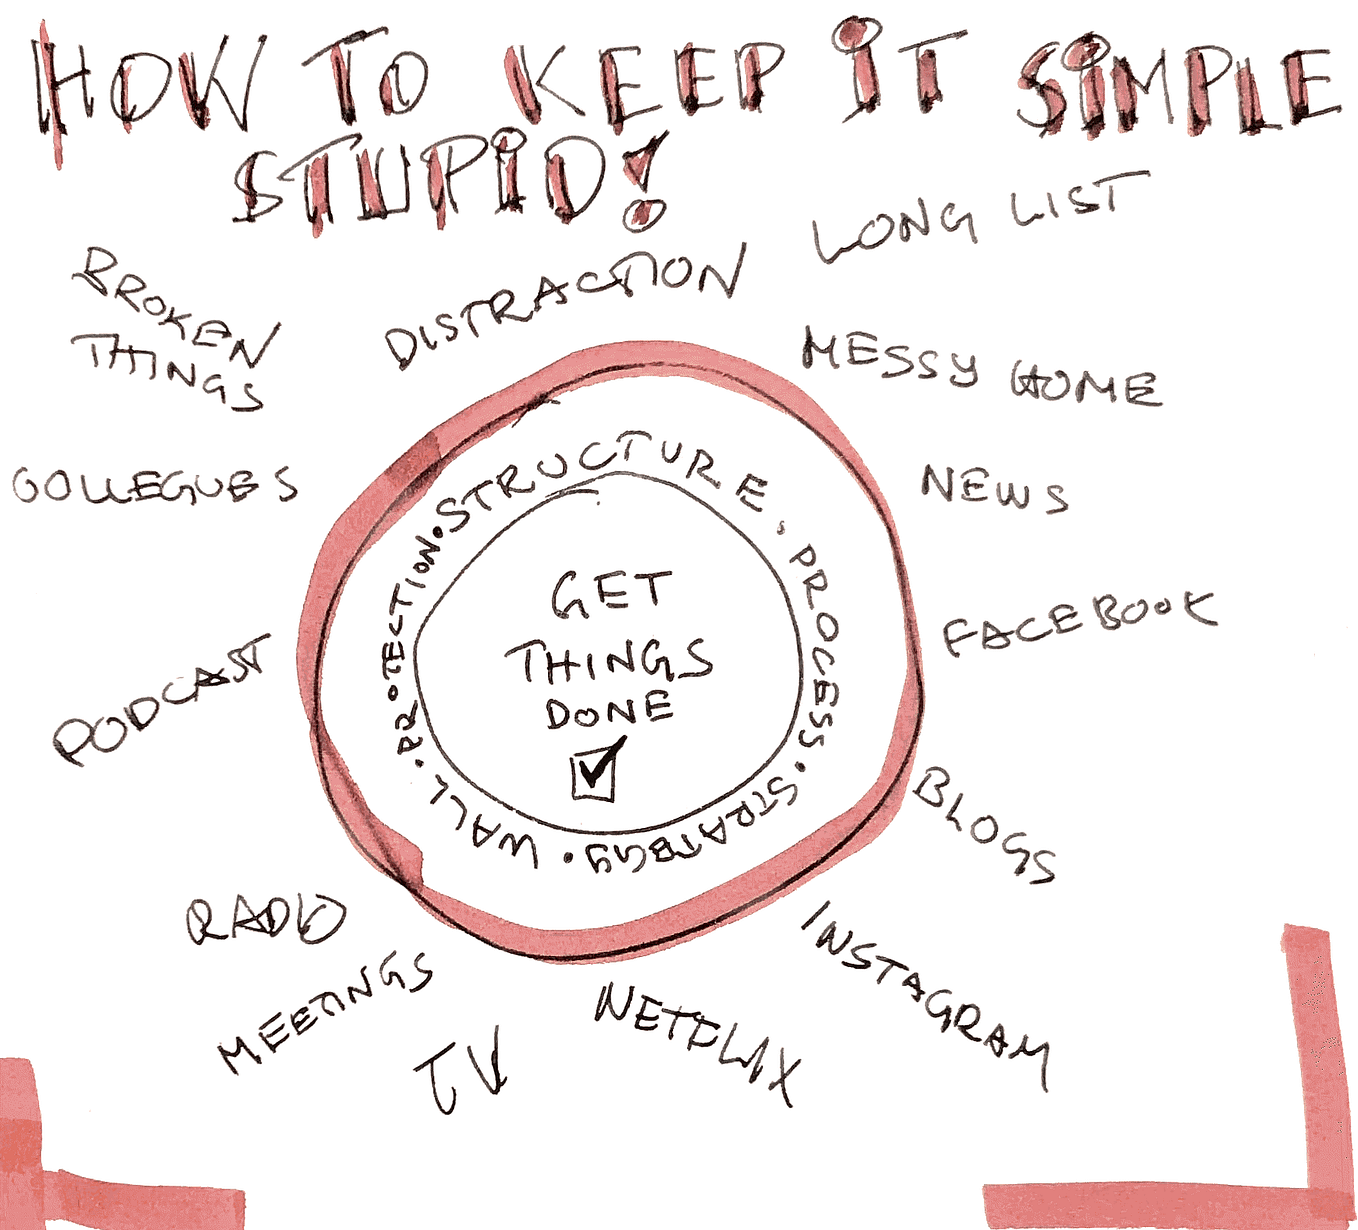 HOW TO KEEP IT SIMPLE
STUPID!
LONG LIST
DISTRACTION
BROKEN
THINGS
MESSY HOME
COLLEGUES
NEWS
STRUCTURE. PROCESS. STRATEGY. WALL. PROTECTION.
GET
THINGS
DONE
FACEBOOK
PODCAST
BLOGS
RADIO
INSTAGRAM
MEETINGS
NETFLIX
TV